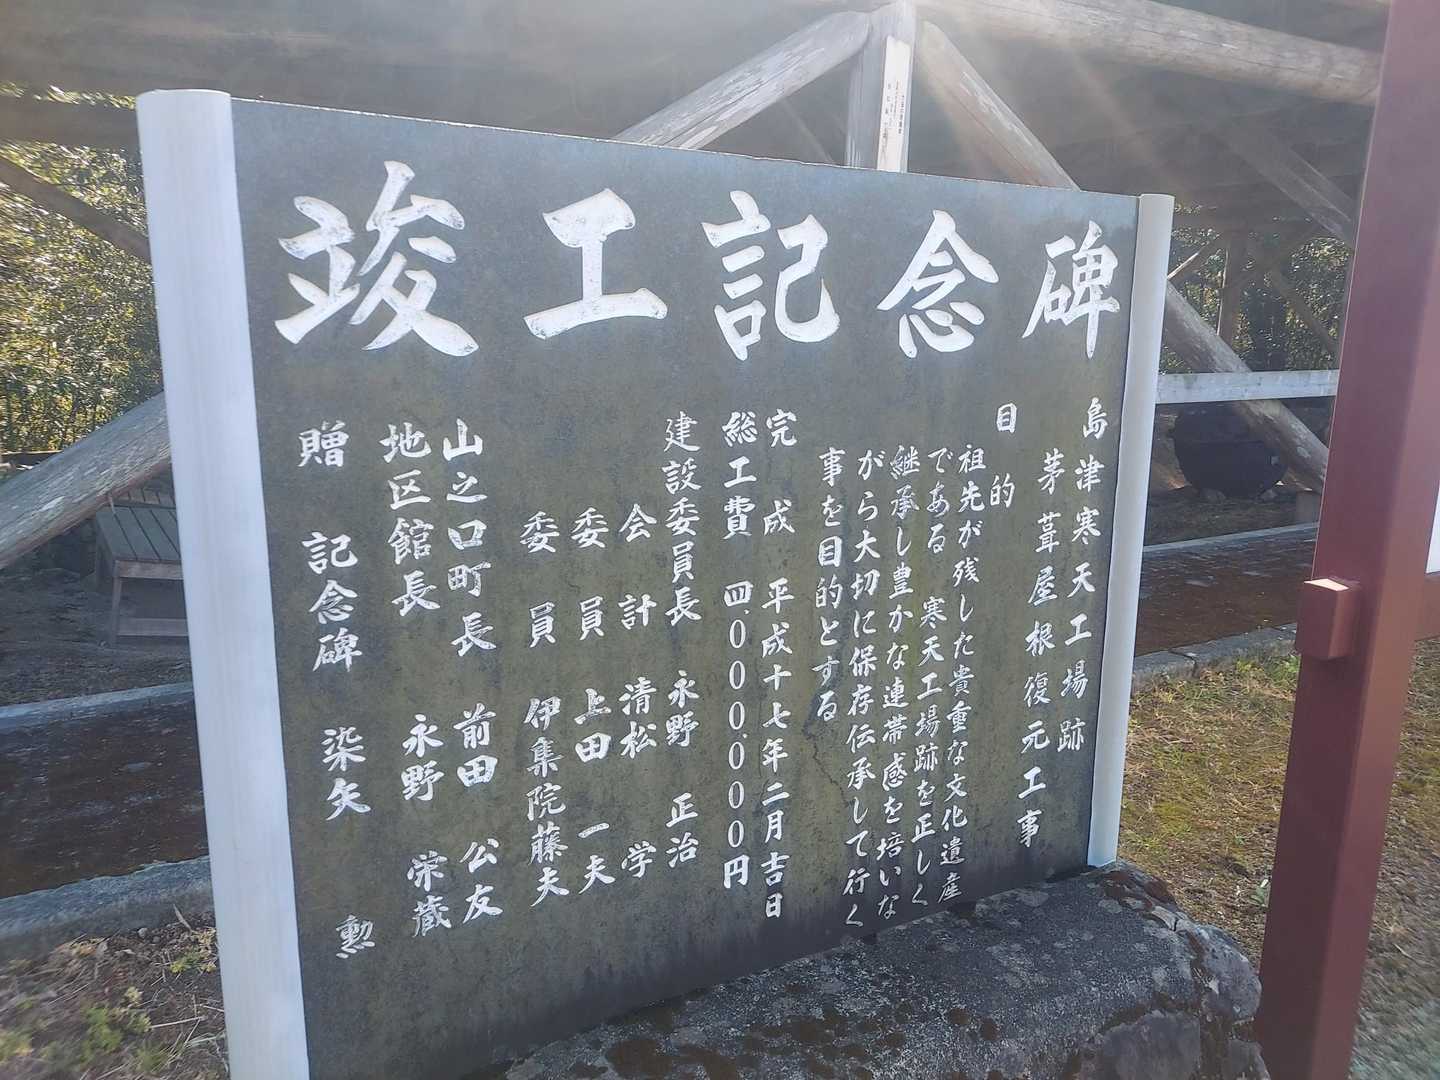 竣工記念碑
島津寒天工場跡
茅葺屋根復元工事
目的
祖先が残した貴重な文化遺産
である 寒天工場跡を正しく
継承し豊かな連帯感を培いな
がら大切に保存伝承して行く
事を目的とする
完成 平成十七年二月吉日
総工費 四.000.000円
建設委員長 永野 正治
会計 清松 学
委員 上田 一夫
委員 伊集院藤夫
山之口町長 前田 公友
地区館長 永野 栄蔵
贈 記念碑 染矢 勲